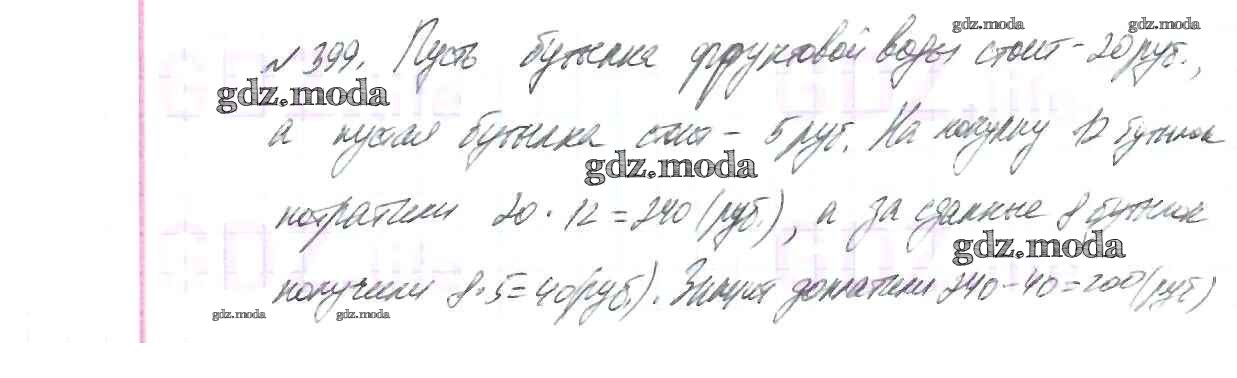 gdz.moda gdz.moda
№ 399. Пусть бутылка фруктовой воды стоит - 20 руб.,
gdz.moda
а пустая бутылка стоит - 5 руб. На покупку 12 бутылок
gdz.moda
потратили 20 · 12 = 240 (руб.), а за сданные 8 бутылок
gdz.moda
получили 8·5=40(руб.). доплатили 240-40=200(руб)
gdz.moda gdz.moda